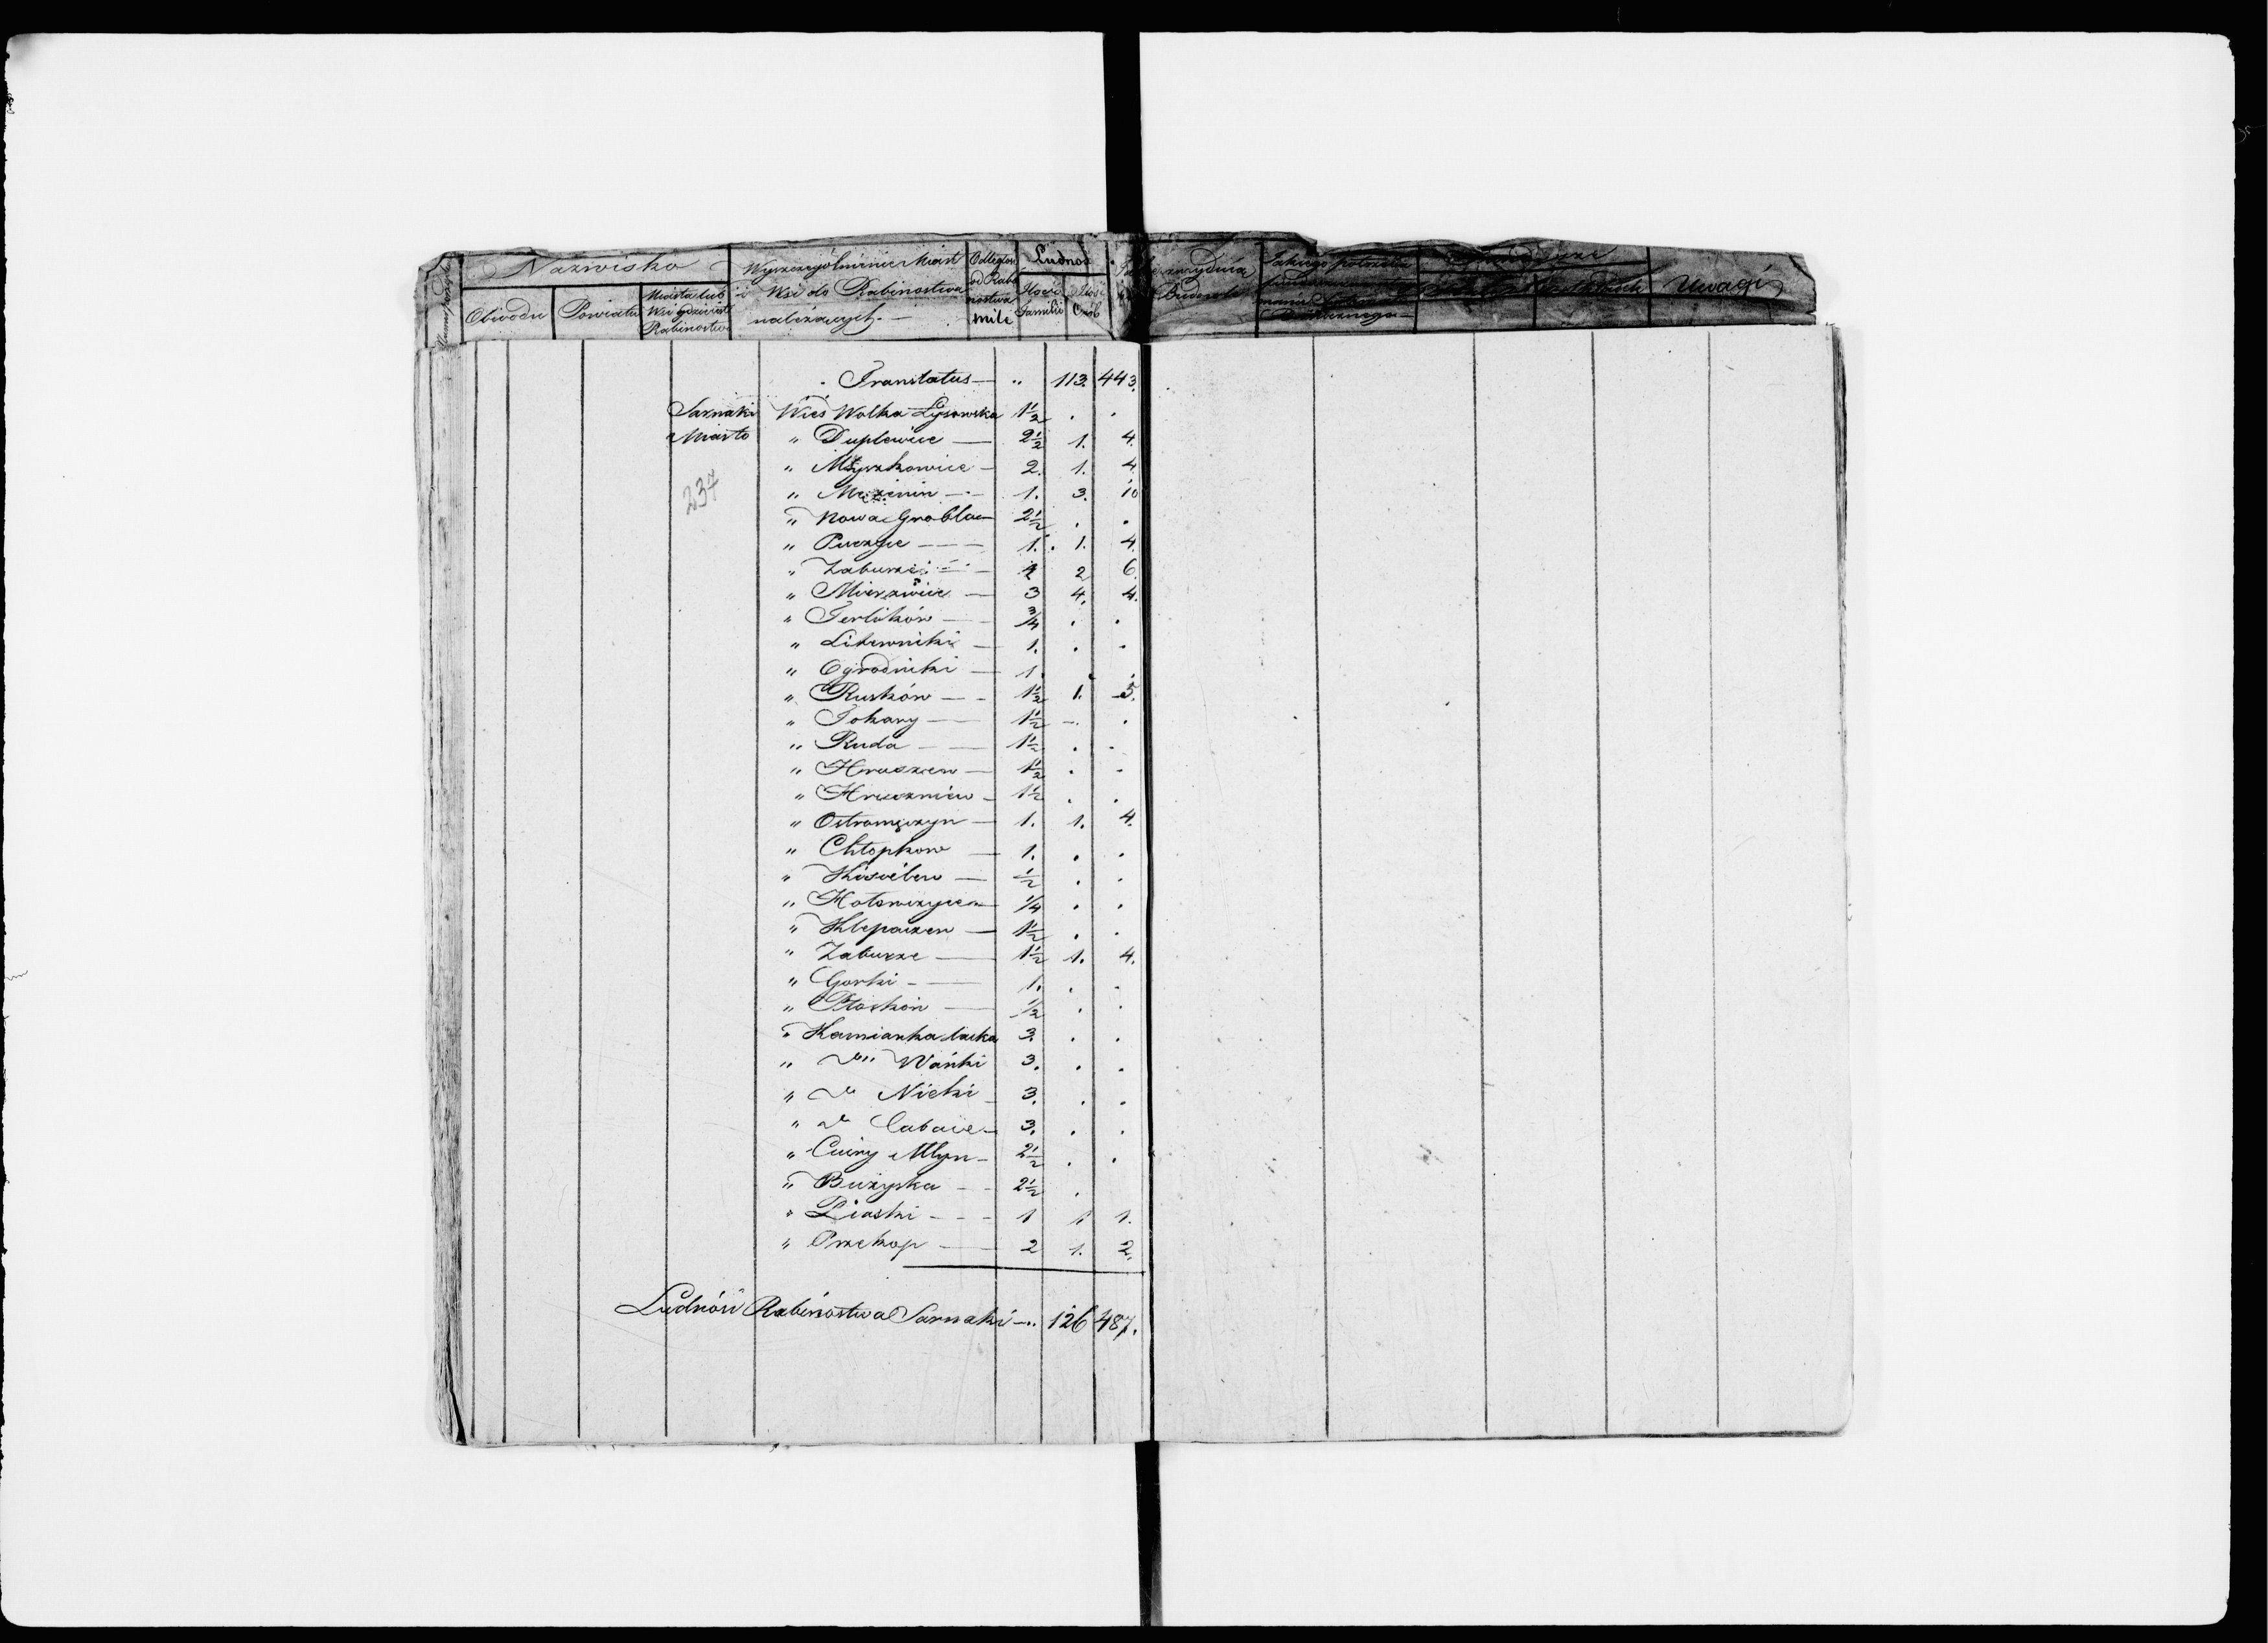 Nazwisko
Obwodu Powiatu Miasta lub Wsi gdzie jest Rabinostwo
Wyszczególnienie Miast i Wsi do Rabinostwa należących.
Odległość od Rabinostwa mile
Ludność
Ilość Familii Ilość Osób
Uwagi
Translatus — " 113. 443.
Sarnaki Wieś Wolka Łysowska 1½ . .
Miasto " Duplewice — 2½ 1. 4.
" Myszkowice — 2. 1. 4.
237
" Mężenin — 1. 3. 10
" Nowa Grobla — 2½ . .
" Puczyce — 1. 1. 4.
" Zaburze — 2 6.
" Mierzwice — 3 4. 4.
" Terlików — ¾ . .
" Litewniki — 1. . .
" Ogrodniki — 1. . .
" Rusków — 1½ 1. 5.
" Tokary — 1½ - .
" Ruda — 1½ . .
" Hruszew — 1½ . .
" Hruszniew — 1½ . .
" Ostromęczyn — 1. 1. 4.
" Chłopkow — 1. . .
" Kisielew — ½ . .
" Hołowczyce — ¼ . .
" Klepaczew — 1½ . .
" Zaburze — 1½ 1. 4.
" Gorki — 1. . .
" Płosków — ½ . .
" Kamianka lacka 3. . .
" Wańki 3. . .
" Nicki 3. . .
" Cabaie 3. . .
" Mlyn — 2½ . .
" Bużyska — 2½ .
" Piaski — 1 1 1.
" Przekop — 2 1. 2.
Ludność Rabinostwa Sarnaki — 126 487.